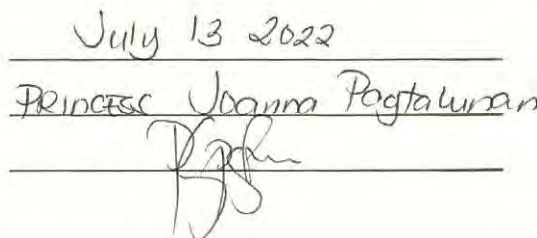 July 13 2022
PRINCESC Joanna Pagtalunan